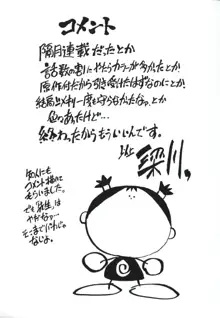 コメント
隔月連載だったとか
話数の割にやたらカラーが多かったとか
原作付だから引き受けたはずなのにとか
結局〆切一度も守らなかったなっとか
色々あったけど…
終わったからもういいんです。
以上
梁川,
知人にも
コメント描いて
もらいました。
でも「餅生」は
やだなっ…
そこまで
なじょ。